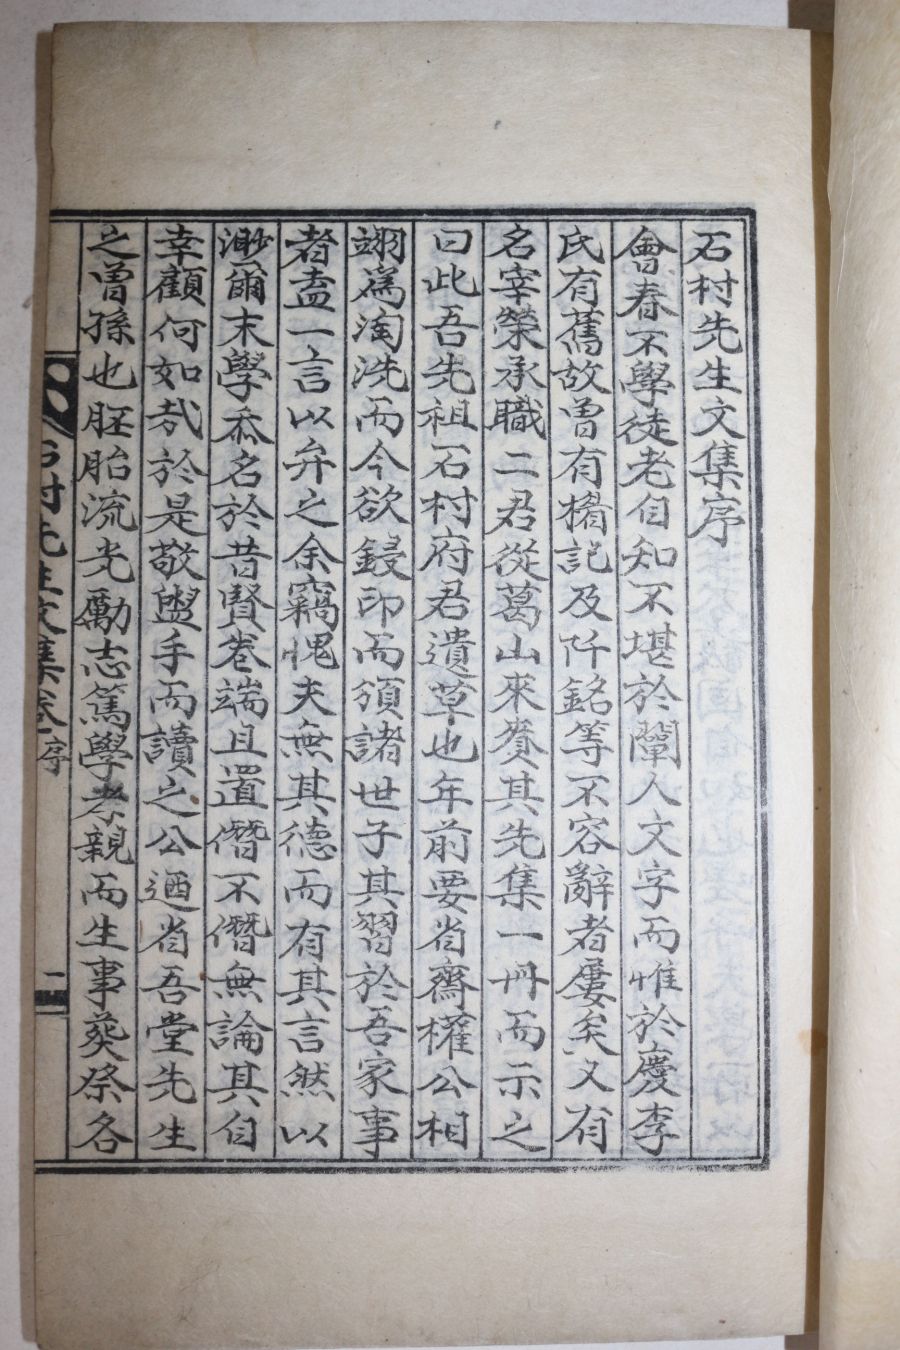 石村先生文集序
會春不學徒老自知不堪於闡人文字而惟於慶李
氏有舊故曾有橘記及阡銘等不容辭者屢矣又有
名宰榮承職二君從葛山來賚其先集一冊而示之
曰此吾先祖石村府君遺草也年前要省齋權公相
翊爲淘洗而今欲鋟印而頒諸世子其習於吾家事
者盍一言以弁之余竊愧夫無其德而有其言然以
渺爾末學忝名於昔賢卷端且置僭不僭無論其自
幸顧何如㢤於是敬盥手而讀之公迺省吾堂先生
之曾孫也胚胎流光勵志篤學孝親而生事葬祭各
石村先生文集卷一 序 一